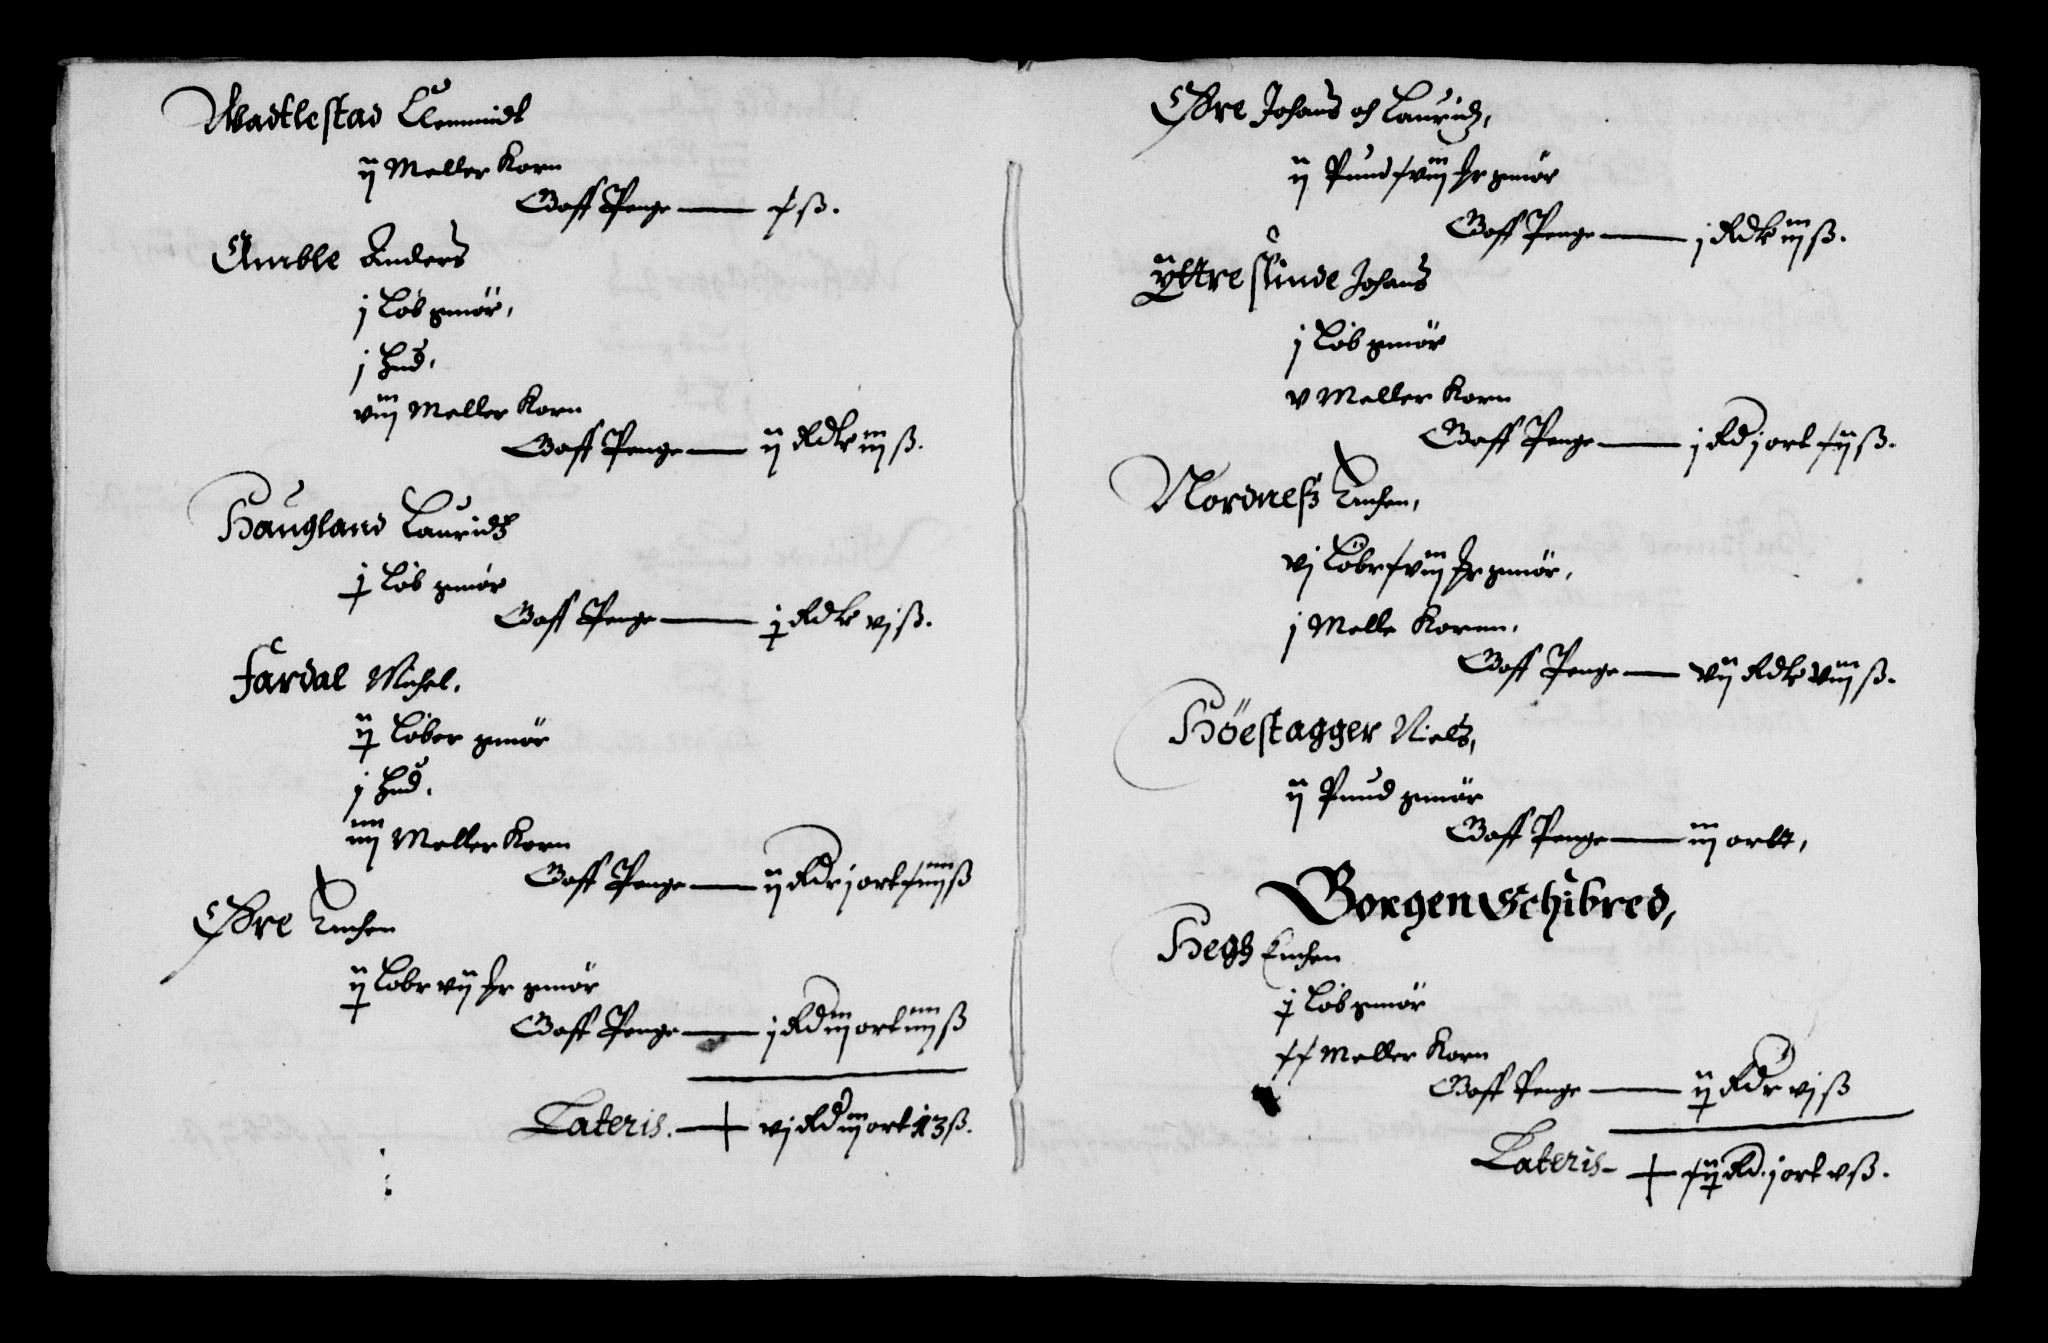 Wadtlestad Clemmidt
ij Meller Korn
Gaff Penge — x ß.
Amble Anders
j Løb smør,
j hud,
viij Meller Korn
Gaff Penge — ij Rdlr iij ß.
Haugland Lauridtz
j Løb smør
Gaff Penge — j Rdlr vj ß.
Fardal Michel.
ij Løber smør
j hud.
iiij Meller Korn
Gaff Penge — ij Rdr j ort xiiij ß
Øfre Enchen
ij Løbr vij hr smør
Gaff Penge — j Rd iij ort iiij ß
Lateris. — vj Rd iij ort 13 ß.
Øfre Johans och Lauridtz,
ij Pund xviij hr smør
Gaff Penge — j Rdlr iij ß.
Ÿttre Flinde Johans
j Løb smør
v Meller Korn
Gaff Penge — j Rd j ort xij ß.
Nordneß Enchen,
vj Løbr xviij hr smør,
j Melle Koren,
Gaff Penge — vij Rdlr viij ß.
Höestagger Nielß,
ij Pund smør
Gaff Penge — iij ortt,
Borgen Schibred,
Hegh Enchen
j Løb smør
xx Meller Korn
Gaff Penge — ij Rdr vj ß
Lateris — xij Rd. j ort v ß.